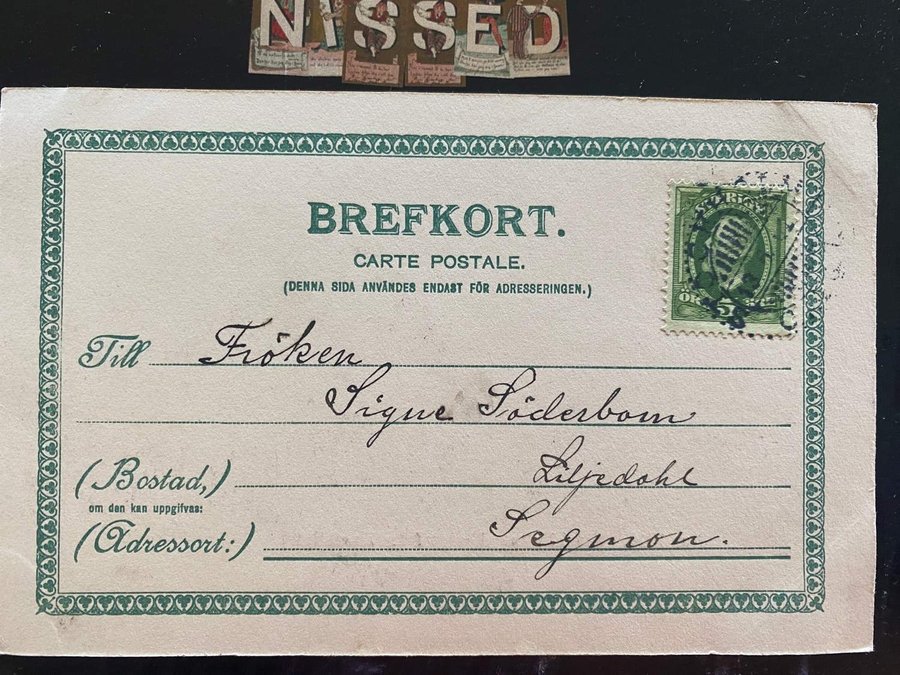 NISSED
BREFKORT.
CARTE POSTALE.
(DENNA SIDA ANVÄNDES ENDAST FÖR ADRESSERINGEN.)
SVERIGE
5
Till Fröken
Signe Söderbom
(Bostad,) Liljedahl
om den kan uppgifvas:
(Adressort:) Segmon.